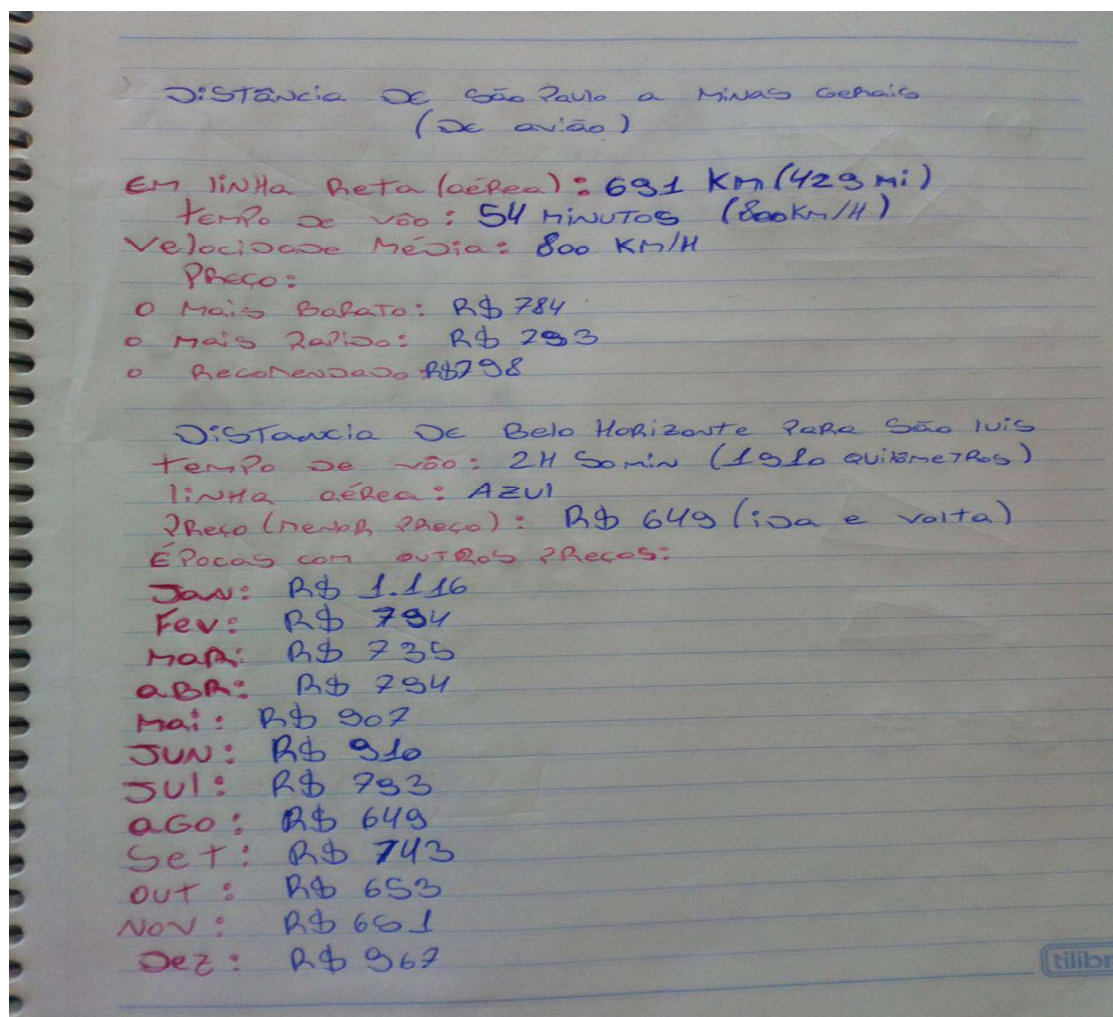 Distância de São Paulo a Minas Gerais
(De avião)
Em linha reta (aérea): 691 Km (429 mi)
tempo de vôo: 54 minutos (800km/H)
Velocidade média: 800 KM/H
Preço:
o Mais Barato: R$ 784
o Mais Rapido: R$ 293
o Recomendado R$798
Distancia de Belo Horizonte para São luis
tempo de vôo: 2H 50min (1910 quilômetros)
linha aérea: Azul
Preço (menor preço): R$ 649 (ida e volta)
Épocas com outros preços:
Jan: R$ 1.116
Fev: R$ 794
Mar: R$ 735
abr: R$ 794
Mai: R$ 907
Jun: R$ 910
Jul: R$ 793
ago: R$ 649
Set: R$ 743
out: R$ 653
Nov: R$ 651
Dez: R$ 967
tilibr